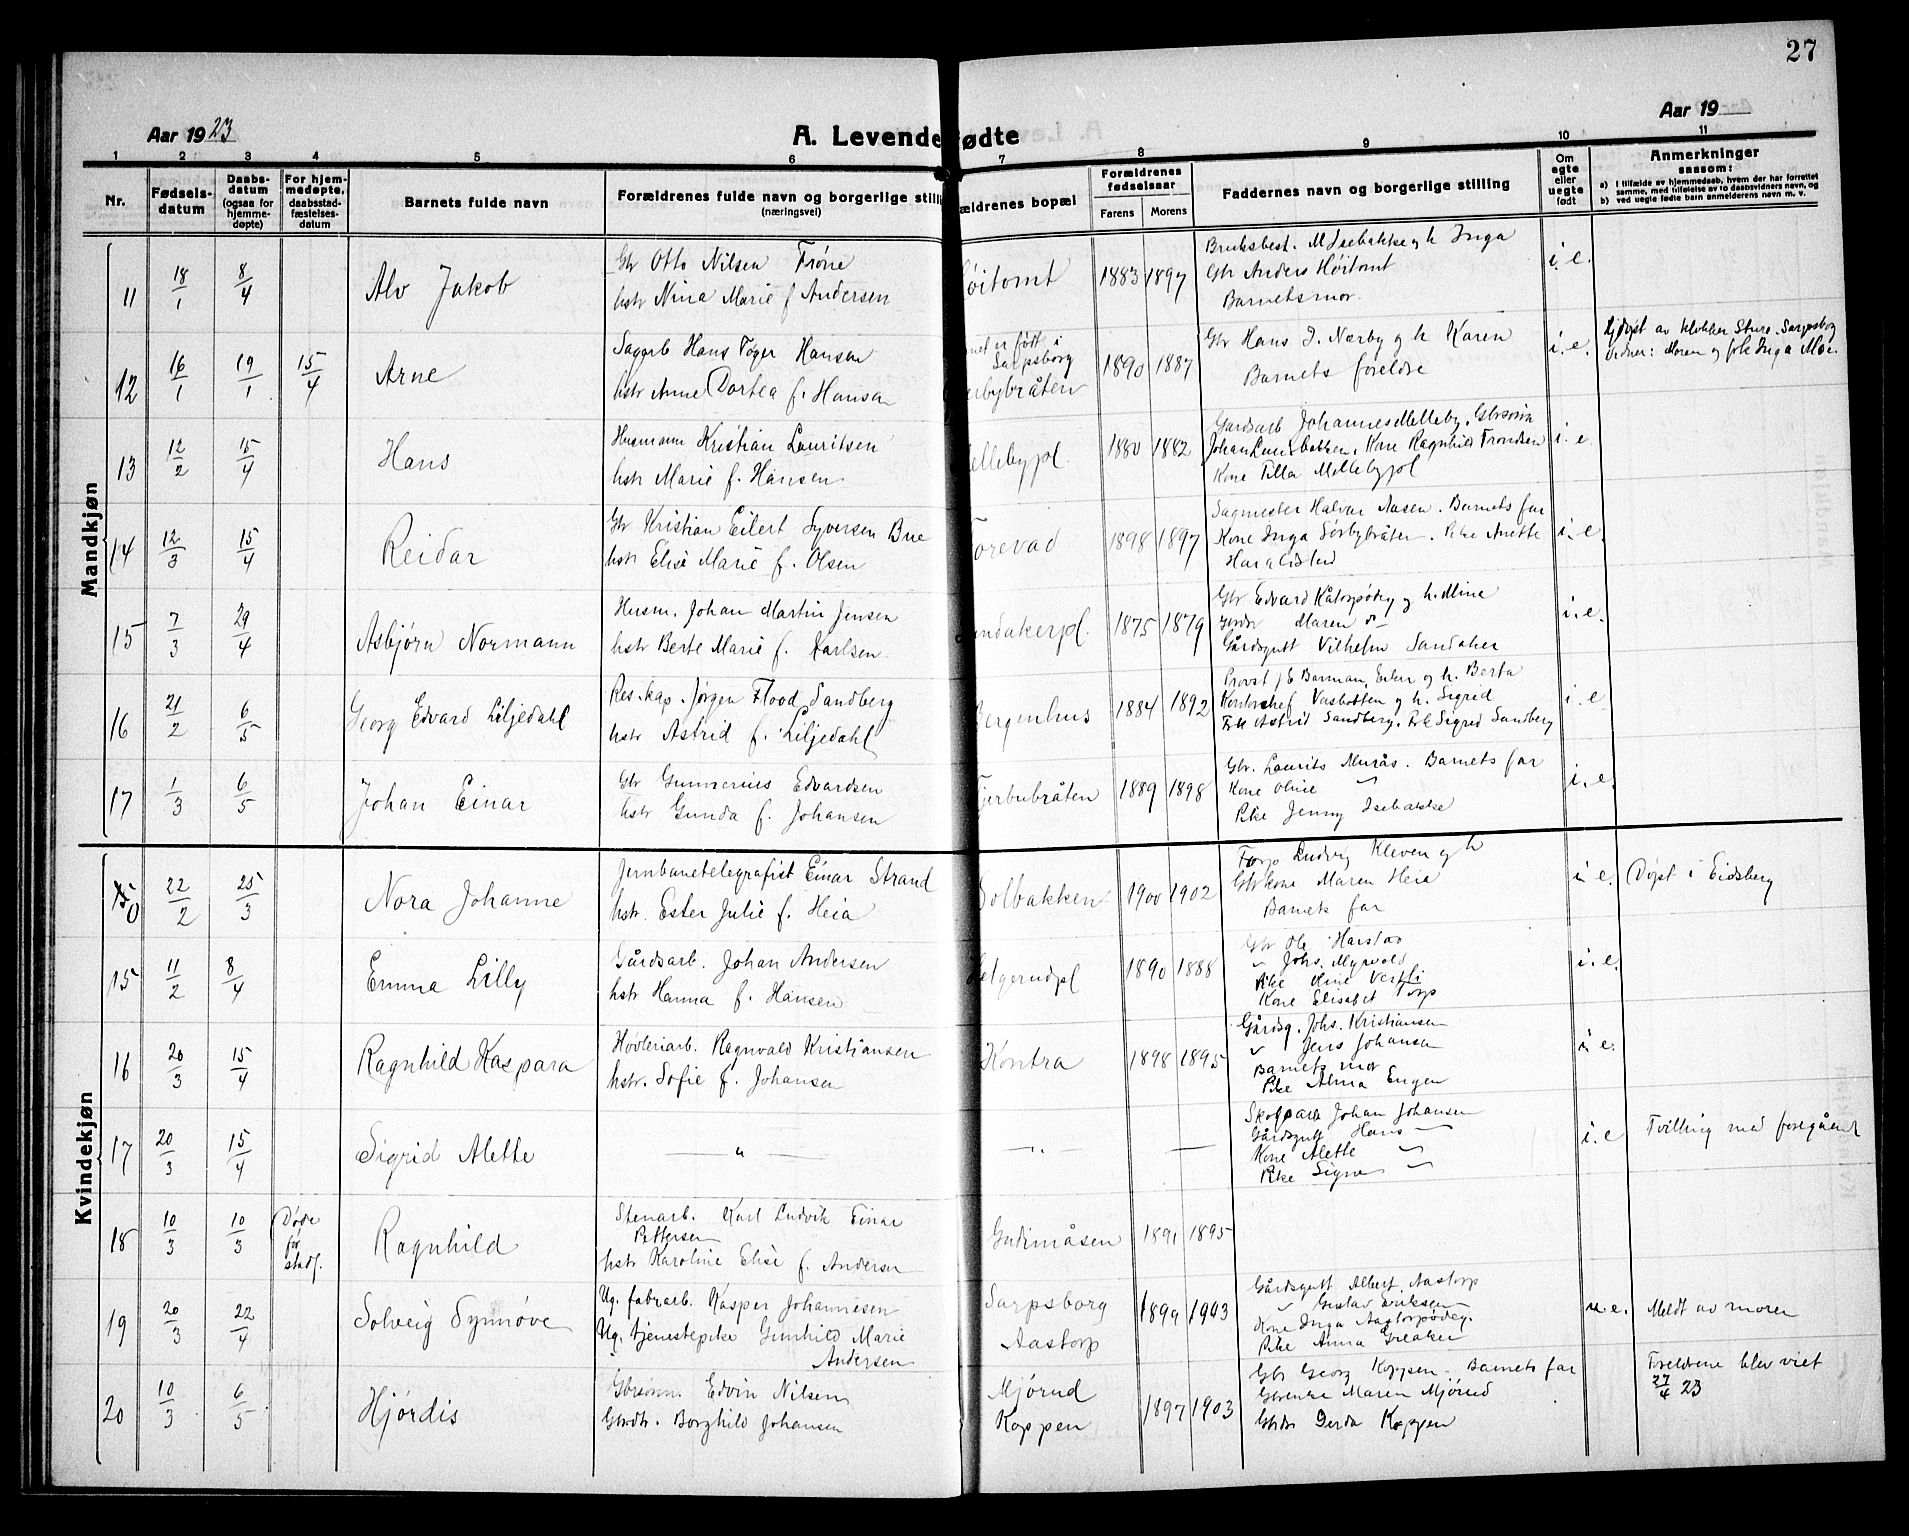 27
Aar 1923
A. Levendefødte
Aar 19
1 2 3 4 5 6 7 8 9 10 11
Nr.
Fødsels-
datum
Daabs-
datum
(ogsaa for
hjemme-
døpte)
For hjem-
medøpte,
daabsstad-
fæstelses-
datum
Barnets fulde navn
Forældrenes fulde navn og borgerlige stilli
(næringsvei)
ældrenes bopæl
Forældrenes
fødselsaar
Farens Morens
Faddernes navn og borgerlige stilling
Om
egte
eller
uegte
født
Anmerkninger
saasom:
a) I tilfælde av hjemmedaab, hvem der har forrettet
samme, med tilføielse av to daabsvidners navn, og
b) ved uegte fødte barn anmelderens navn m. v.
Mandkjøn
11 18/1 8/4 Alv Jakob
Gbr Otto Nilsen Trøne
hstr Nina Marie f Andersen
øitomt 1883 1897
Bruksbest. M Isebakke og h Inga
Gbr Anders Høitomt
Barnets mor.
i. e.
12 16/1 19/1 15/4 Arne
Sagarb Hans Tøger Hansen
hstr Anne Dortea f. Hansen
net er født i
Sarpsborg
bybråten
1890 1887
Gbr Hans J. Nærby og h Karen
Barnets foreldre
i. e.
Hjdøpt av klokker Sture. Sarpsborg
Vidner: Moren og frk Inga Moe.
13 12/2 15/4 Hans
Husmann Kristian Lauritsen
hstr Marie f. Hansen
ellebypl. 1880 1882
Gårdsarb Johannes Melleby, Gbrsønn
Johan Lundebakken, Kone Ragnhild Trondsen
Kone Tilla Mellebypl
i. e
14 12/3 15/4 Reidar
Gbr Kristian Eilert Syversen Bue
hstr Elise Marie f. Olsen
Torevad 1898 1897
Sagmester Halvar Aasen. Barnets far
Kone Inga Sørbybråten. Pike Anette
Haraldstad
i. e.
15 7/3 29/4 Asbjørn Normann
Husm. Johan Martin Jensen
hstr Berte Marie f. Karlsen
ndakerpl. 1875 1879
Gbr Edvard Kåtorpødeg og h. Mina
Maren
Gårdsgutt Vilhelm Sandaker
i. e.
16 21/2 6/5 Georg Edvard Liljedahl
Res. kap. Jørgen Flood Sandberg
hstr Astrid f. Liljedahl
Bergenhus 1884 1892
Provst og h. Berta
Kontorchef Vasbotten og h. Sigrid
Frk Astrid Sandberg. Frk Sigrid Sandberg
i. e
17 1/3 6/5 Johan Einar
Gbr Gunnerius Edvardsen
hstr Gunda f. Johansen
jerbubråten 1889 1898
Gbr. Laurits Murås. Barnets far
Kone Oline "
Pike Jenny Isebakke
i. e.
Kvindekjøn
22/2 25/3 Nora Johanne
Jernbanetelegrafist Einar Strand
hstr. Ester Julie f. Heia
Solbakken 1900 1902
Torp Ludvig Kleven og h
Gbrkone Maren Heia
Barnets far
i e. Døpt i Eidsberg
15 11/2 8/4 Emma Lilly
Gårdsarb. Johan Andersen
hstr Hanna f. Hansen
elgerudpl 1890 1888
Gbr Ole Harstad
" Johs. Myrvold
Pike Vestli
Kone Elisabet Torp
i. e.
16 20/3 15/4 Ragnhild Kaspara
Høvleriarb. Ragnvald Kristiansen
hstr. Sofie f. Johansen
Kontra 1898 1895
Gårdsg. Johs. Kristiansen
" Jens Johansen
Barnets mor
Pike Alma Engen
i e.
17 20/3 15/4 Sigrid Alette
— " —
— " — —
Johan Johansen
Gårdsgutt Hans "
Kone Alette "
Pike Signe "
i. e Tvilling med foregående
18 10/3 10/3 Døde
før
stadf.
Ragnhild
Stenarb. Karl Ludvik Einar
Pettersen
hstr Karoline Elise f. Andersen
Gudimåsen 1891 1895
19 20/3 22/4 Solveig Synnøve
Ug. fabrarb. Kasper Johannesen
Ug. tjenestepike Gunhild Marie
Andersen
Sarpsborg
Aastorp
1899 1903
Gårdsgutt Albert Aastorp
" Gustav Eriksen
Kone Inga Aastorpødeg.
Pike Anna Greaker
u. e. Meldt av moren
20 10/3 6/5 Hjørdis
Gbrsønn. Edvin Nilsen
Gbrdtr. Borghild Johansen
Mjørud
Koppen
1897 1903
Gbr Georg Koppen. Barnets far
Gbrenke Maren Mjørud
Gbrdtr Gerda Koppen
Foreldrene blev viet
27/4 23